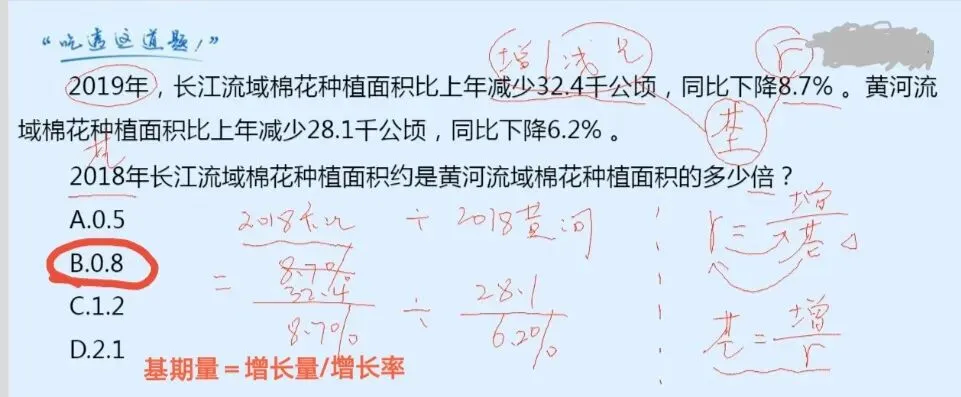 “吃透这道题！”
增/减量
r
2019年，长江流域棉花种植面积比上年减少32.4千公顷，同比下降8.7% 。黄河流
域棉花种植面积比上年减少28.1千公顷，同比下降6.2% 。
基
基
2018年长江流域棉花种植面积约是黄河流域棉花种植面积的多少倍？
A.0.5
B.0.8
C.1.2
D.2.1
2018长江 ÷ 2018黄河
8.7%
= 32.4/8.7% ÷ 28.1/6.2%
r = 增/基
基 = 增/r
基期量＝增长量/增长率